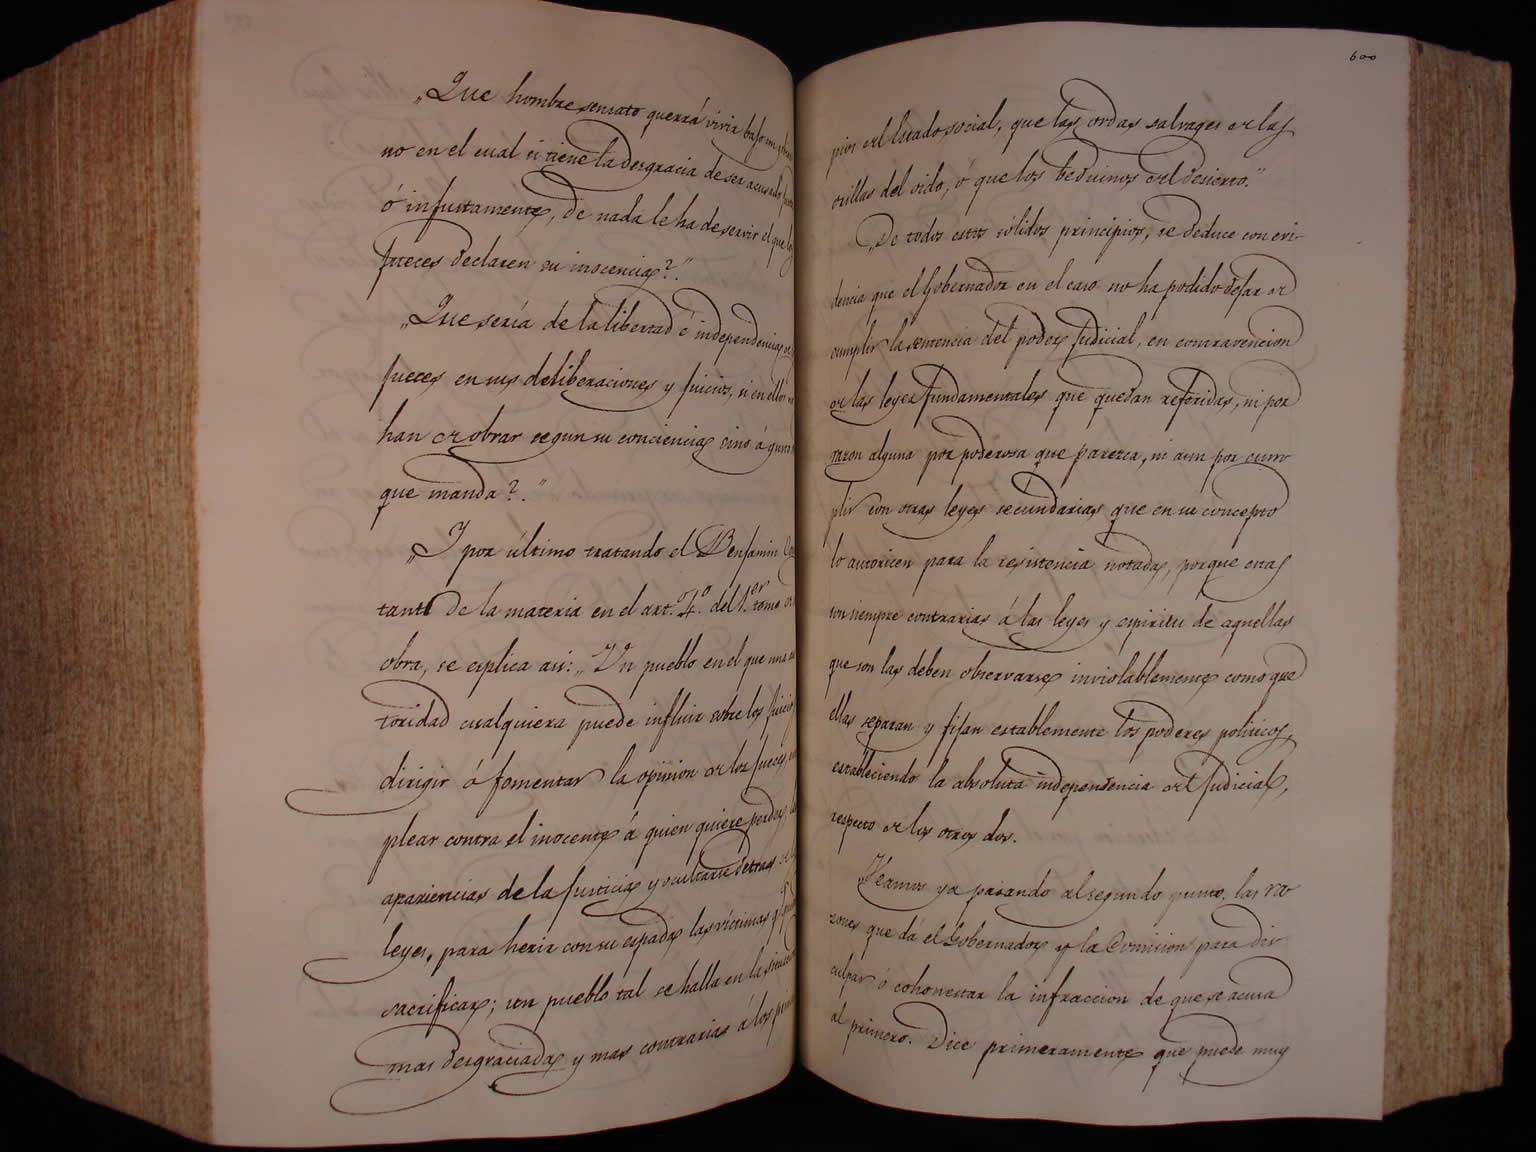 „Que hombre sensato querrá vivir bajo un
no en el cual si tiene la desgracia de ser acusado
ó injustamente, de nada le ha de servir el que los
jueces declaren su inocencia?.”
„Que sería de la libertad é independencia de
jueces en sus deliberaciones y juicios, si en ellos no
han de obrar segun su conciencia sino á
que manda?.”
„I por último tratando el Benjamin
tant de la materia en el art.º 4.º del 1.er tomo de
obra, se esplica asi: „Un pueblo en el que una au
toridad cualquiera puede influir sobre los juicios
dirigir ó fomentar la opinion de los jueces, em
plear contra el inocente á quien quiere perder, las
apariencias de la justicia y ocultarse detras de las
leyes, para herir con su espada las víctimas q.e
sacrificar; un pueblo tal se halla en la situacion
mas desgraciada y mas contraria á los prin
600
pios del Estado social, que las ordas salvages de las
orillas del oido, ó que los beduinos del desierto.”
„De todos estos sólidos principios, se deduce con evi-
dencia que el Gobernador en el caso no ha podido dejar de
cumplir la sentencia del poder Judicial, en contravencion
de las leyes fundamentales que quedan referidas, ni por
razon alguna por poderosa que parezca, ni aun por cum
plir con otras leyes secundarias que en su concepto
lo autoricen para la resistencia notada, porque estas
son siempre contrarias á las leyes y espiritu de aquellas
que son las deben observarse inviolablemente como que
ellas separan y fijan establemente los poderes politicos,
estableciendo la absoluta independencia del Judicial,
respecto de los otros dos.
Veamos ya pasando al segundo punto, las ra
zones que dá el Gobernador y la Comision para dis
culpar ó cohonestar la infraccion de que se acusa
al primero. Dice primeramente que puede muy